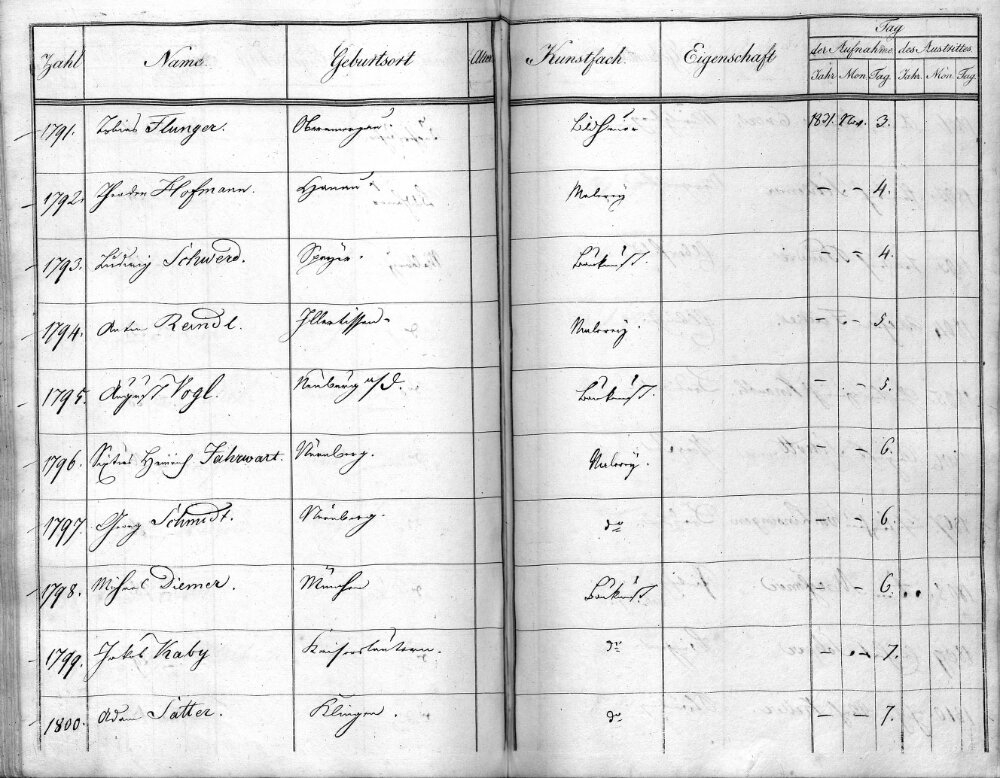 Zahl Name. Geburtsort Alter Kunstfach. Eigenschaft Tag
der Aufnahme des Austrittes.
Jahr Mon. Tag. Jahr. Mon Tag.
1791. Tobias Flunger. Oberamergau Bildhauer 1831. Nov. 3.
1792. Theodor Hofmann. Hanau Malerey – – 4.
1793. Ludwig Schwerd. Speyer. Baukunst. – – 4.
1794. Anton Reindl. Illertissen. Malerey – – 5.
1795. August Vogl. Neuburg a/D. Baukunst. – – 5.
1796. Heinrich Nürnberg. Malerey. – – 6.
1797. Georg Schmidt. Nürnberg. do – – 6.
1798. Michael Diemer. München Baukunst. – – 6.
1799. Jakob Raby Kaiserslautern. do – – 7.
1800. Adam Satter. Klingen. do – – 7.